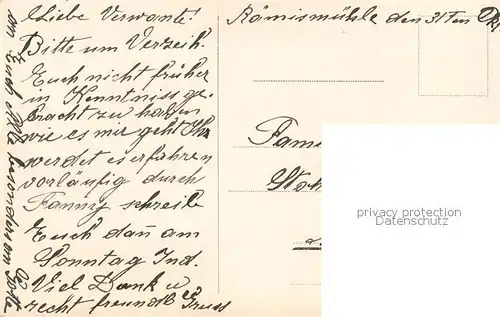 Liebe Verwante!
Bitte um Verzeih.
Euch nicht früher
in Kenntniss ge
bracht zu haben
wie es mir geht Ihr
werdet es erfahren
vorläufig durch
Fanny schreibe
Euch dan̄ am
Sonntag Ind.
Viel Dank u
recht freundl Gruss
an Euch Alle besonders an
Rämismühle den 31ten Okt
Fami
privacy protection